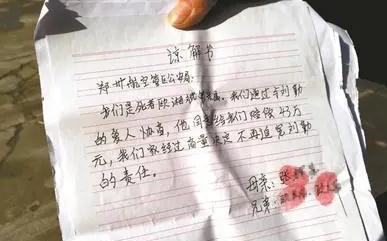 谅解书
郑州航空管公安局:
我们是死者欧湘斌家属。我们通过与刘勤
的爱人协商,他同意给我们赔偿43万
元,我们家经过商量决定不再追究刘勤
的责任。
母亲:张
兄弟: